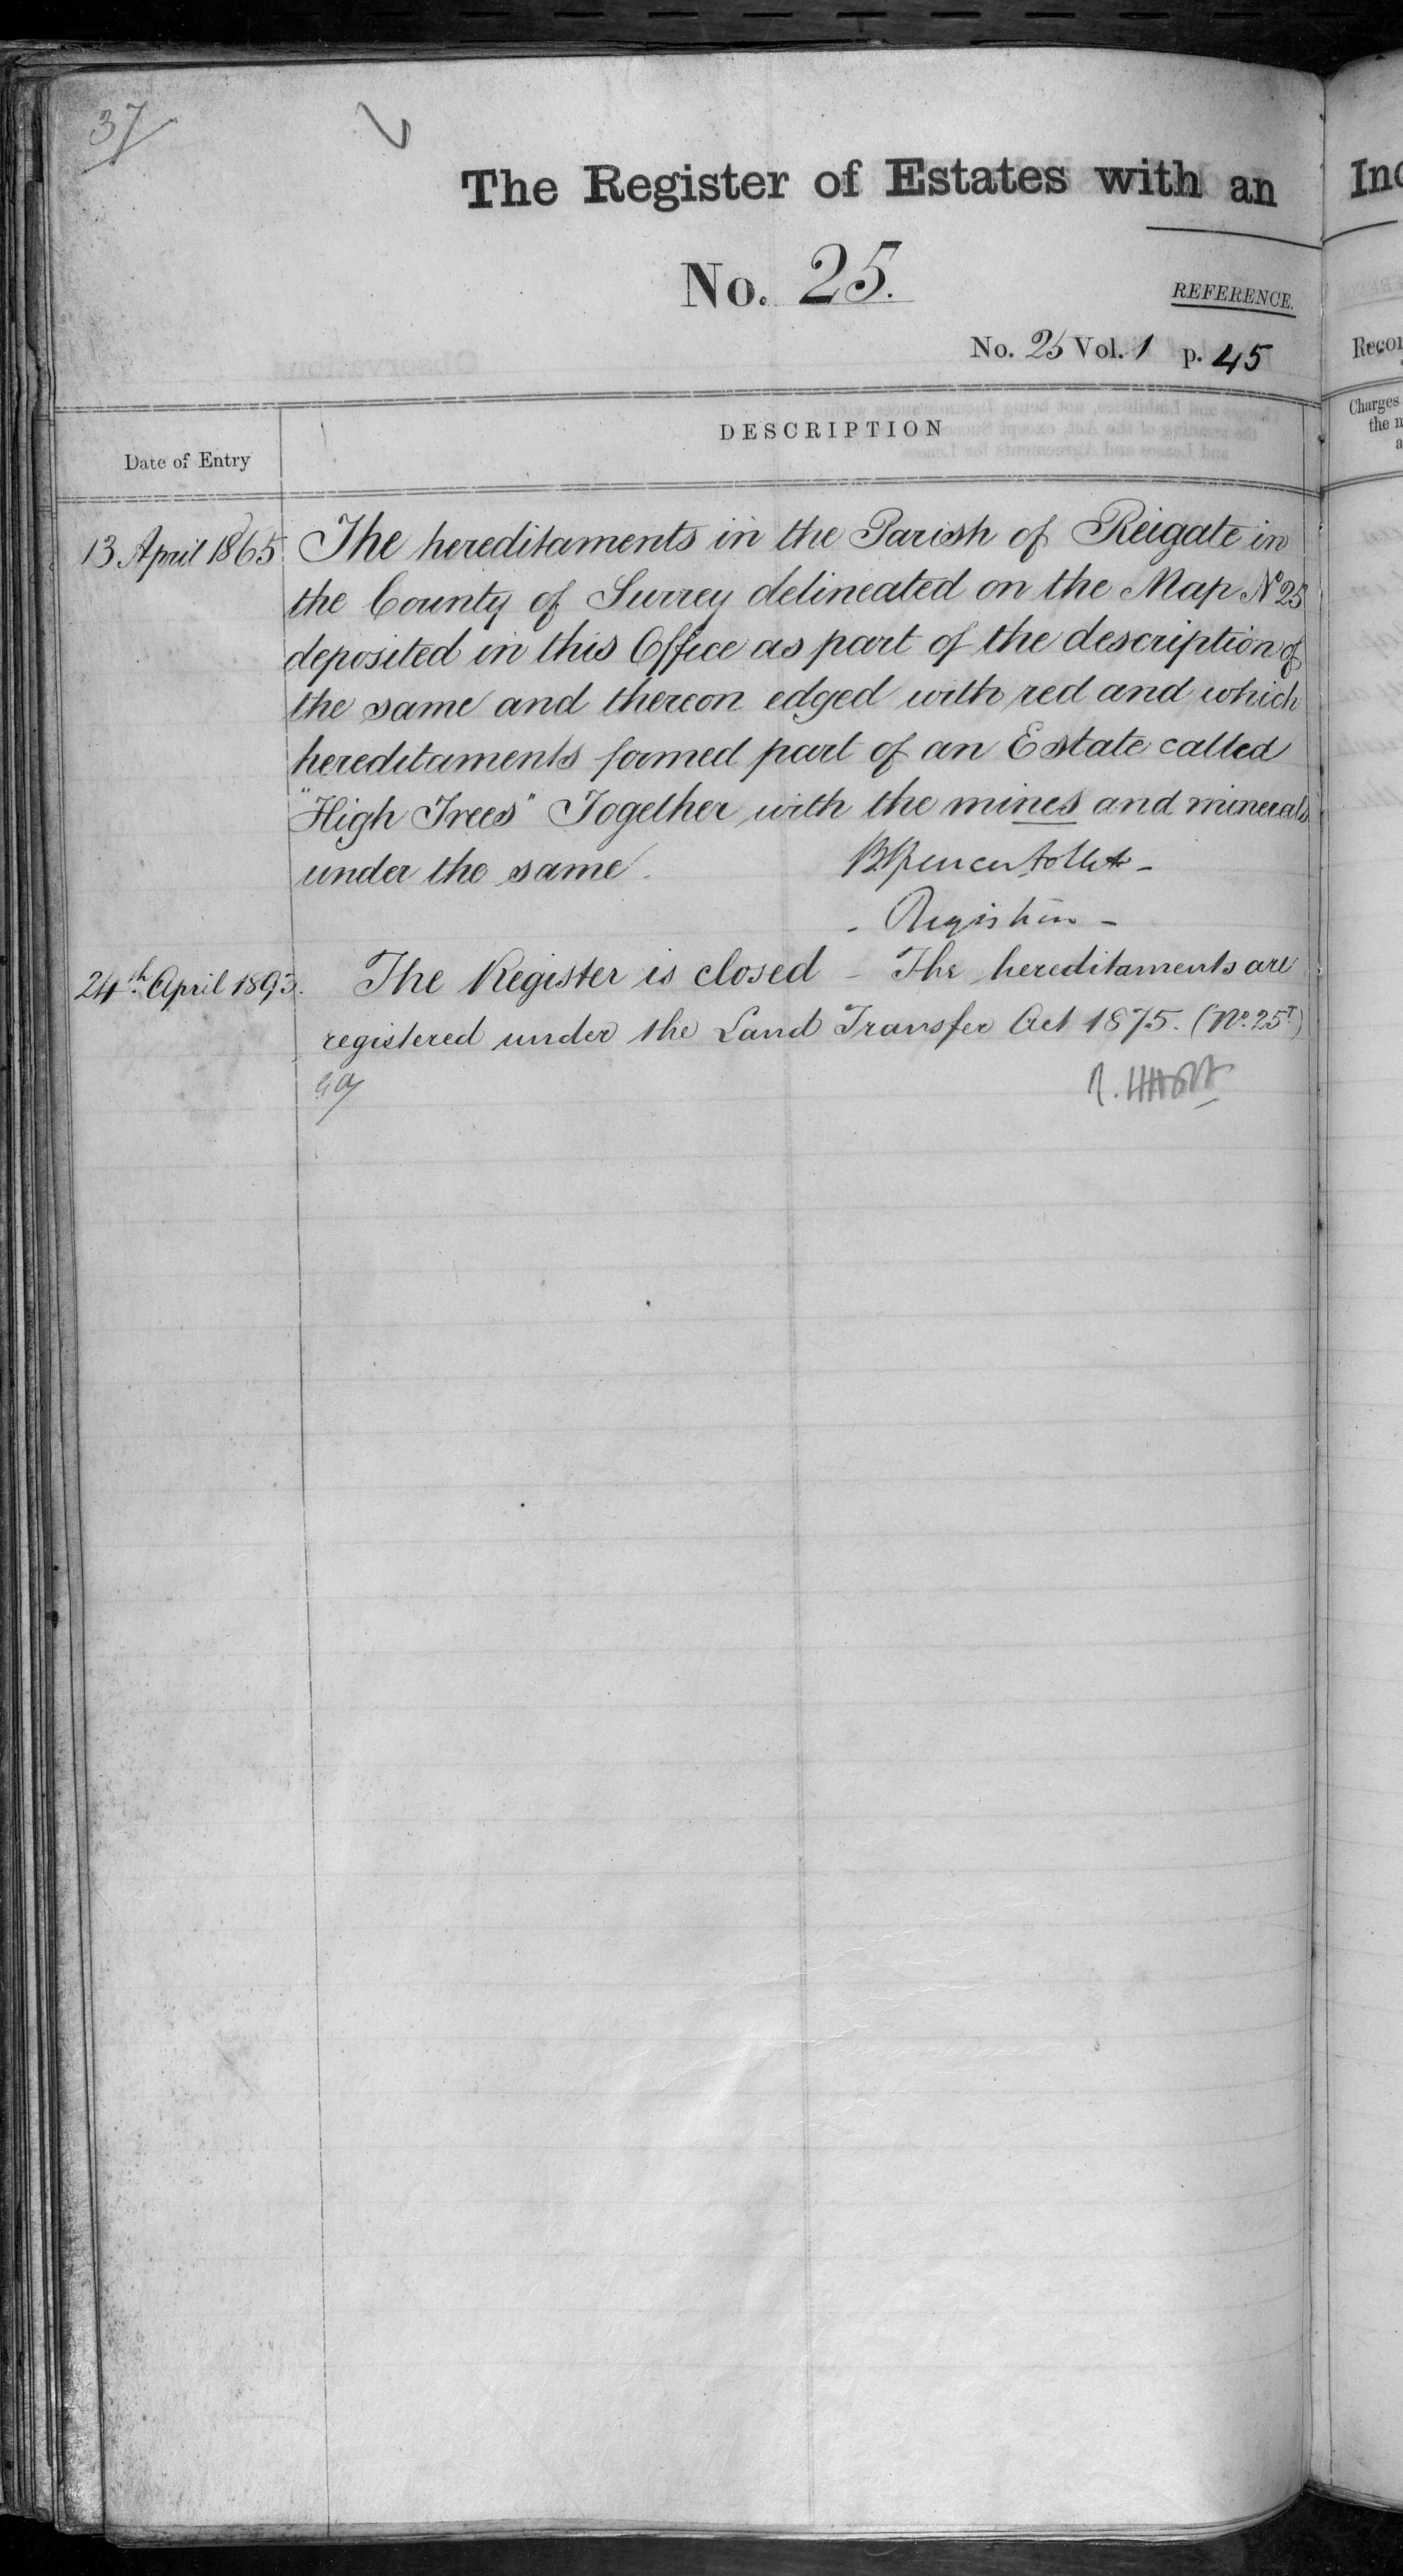 37
The Register of Estates with an
No. 25.
REFERENCE.
No. 25 Vol. 1 p. 45
Date of Entry
DESCRIPTION
13 April 1865 The hereditaments in the Parish of Reigate in
the County of Surrey delineated on the Map No 25
deposited in this Office as part of the description of
the same and thereon edged with red and which
hereditaments formed part of an Estate called
"High Trees" Together with the mines and minerals
under the same.
Registrar
24th April 1893. The Register is closed – The hereditaments are
registered under the Land Transfer Act 1875. (No. 25T)
Charges
the